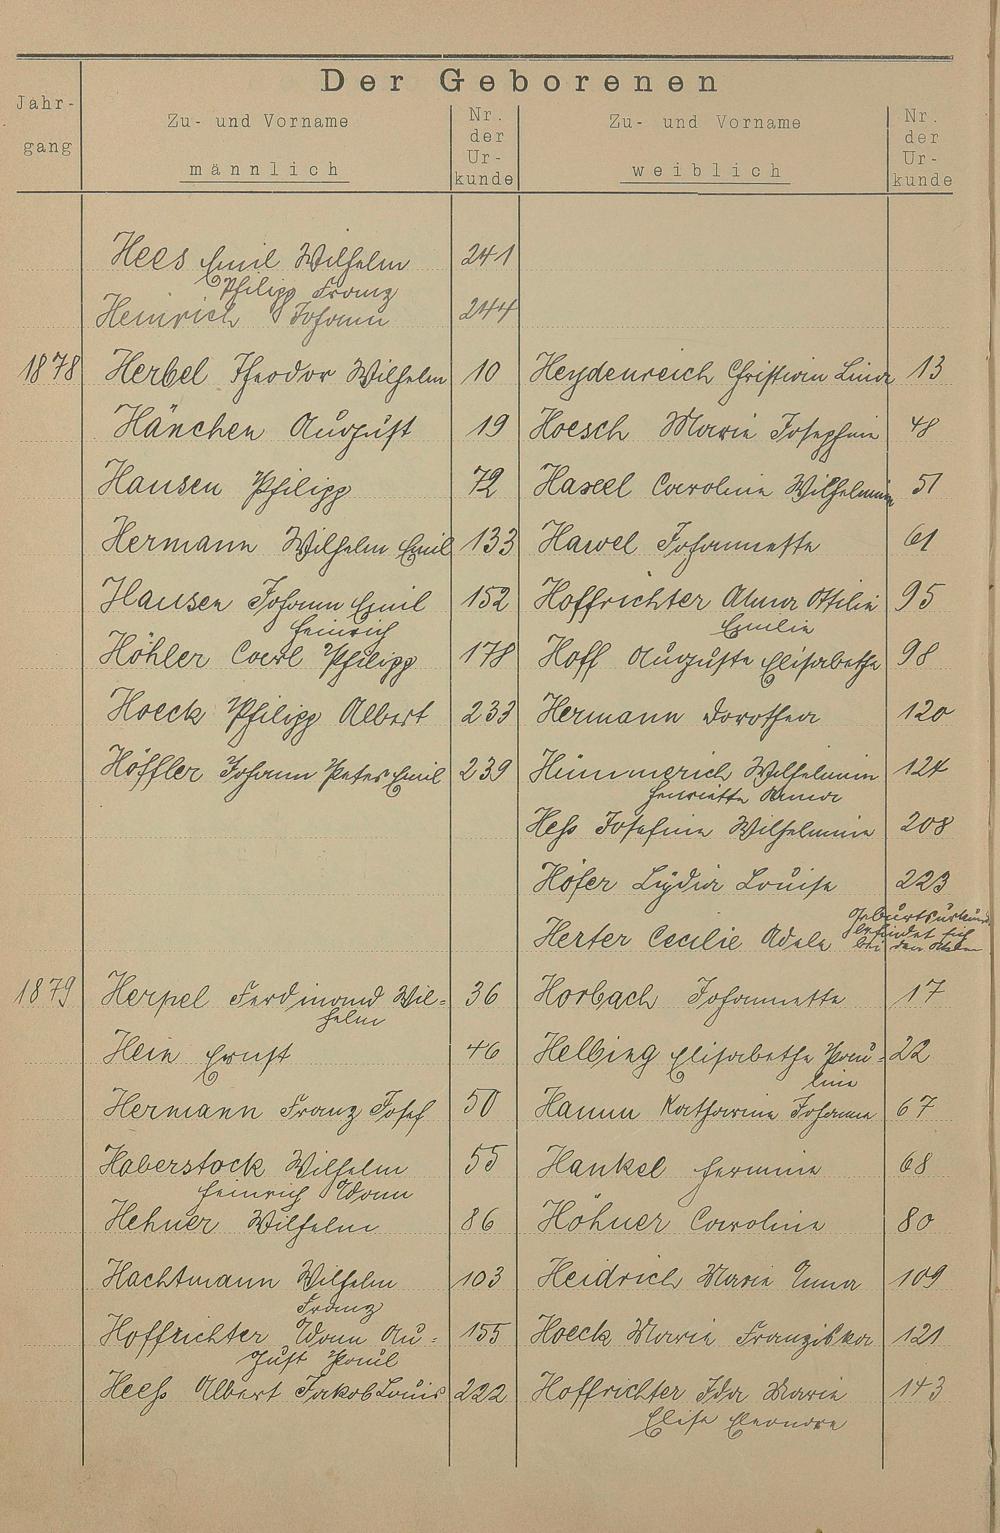 Der Geborenen
Jahr-
gang
Zu- und Vorname
männlich
Nr.
der
Ur-
kunde
Zu- und Vorname
weiblich
Nr.
der
Ur-
kunde
Hees Emil Wilhelm 241
Philipp Franz
Heinrich Johann 244
1878 Herbel Theodor Wilhelm 10 Heydenreich Christian Lina 13
Hänchen August 19 Hoesch Marie Josephine 48
Hausen Philipp 72 Hasel Caroline Wilhelmine 51
Hermann Wilhelm Emil 133 Hawel Johannette 61
Hausen Johann Emil 152 Hoffrichter Alma Ottilie 95
Heinrich Emilie
Höhler Carl Philipp 178 Hoff Auguste Elisabethe 98
Hoeck Philipp Albert 233 Hermann Dorothea 120
Höffler Johann Peter Emil 239 Hümmerich Wilhelmine 124
Henriette Anna
Heß Josefine Wilhelmine 208
Höfer Lydia Louise 223
Herter Cecilie Adele Geburtsurkunde
befindet sich
bei den Akten
1879 Herpel Ferdinand Wil= 36 Horbach Johannette 17
helm
Hein Ernst 46 Helbing Elisabethe Pau= 22
line
Hermann Franz Josef 50 Hamm Katharine Johanna 67
Haberstock Wilhelm 55 Hankel Hermine 68
Heinrich Adam
Hehner Wilhelm 86 Höhner Caroline 80
Hachtmann Wilhelm 103 Heidrich Marie Anna 109
Franz
Hoffrichter Adam Au= 155 Hoeck Marie Franziska 121
gust Paul
Heeß Albert Jakob Louis 222 Hoffrichter Ida Marie 143
Elise Eleonore